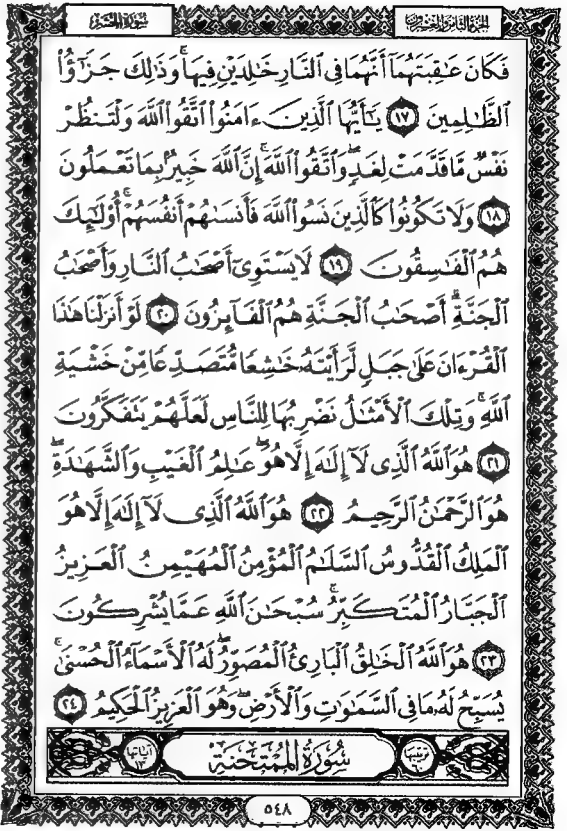 سُورَةُ الحَشْرِ
الجُزْءُ الثَّامِنُ وَالعِشْرُونَ
فَكَانَ عَٰقِبَتَهُمَآ أَنَّهُمَا فِى ٱلنَّارِ خَٰلِدَيْنِ فِيهَا ۚ وَذَٰلِكَ جَزَٰٓؤُا۟
ٱلظَّٰلِمِينَ ١٧ يَٰٓأَيُّهَا ٱلَّذِينَ ءَامَنُوا۟ ٱتَّقُوا۟ ٱللَّهَ وَلْتَنظُرْ
نَفْسٌ مَّا قَدَّمَتْ لِغَدٍ ۖ وَٱتَّقُوا۟ ٱللَّهَ ۚ إِنَّ ٱللَّهَ خَبِيرٌۢ بِمَا تَعْمَلُونَ
١٨ وَلَا تَكُونُوا۟ كَٱلَّذِينَ نَسُوا۟ ٱللَّهَ فَأَنسَىٰهُمْ أَنفُسَهُمْ ۚ أُو۟لَٰٓئِكَ
هُمُ ٱلْفَٰسِقُونَ ١٩ لَا يَسْتَوِىٓ أَصْحَٰبُ ٱلنَّارِ وَأَصْحَٰبُ
ٱلْجَنَّةِ ۚ أَصْحَٰبُ ٱلْجَنَّةِ هُمُ ٱلْفَآئِزُونَ ٢٠ لَوْ أَنزَلْنَا هَٰذَا
ٱلْقُرْءَانَ عَلَىٰ جَبَلٍ لَّرَأَيْتَهُۥ خَٰشِعًا مُّتَصَدِّعًا مِّنْ خَشْيَةِ
ٱللَّهِ ۚ وَتِلْكَ ٱلْأَمْثَٰلُ نَضْرِبُهَا لِلنَّاسِ لَعَلَّهُمْ يَتَفَكَّرُونَ
٢١ هُوَ ٱللَّهُ ٱلَّذِى لَآ إِلَٰهَ إِلَّا هُوَ ۖ عَٰلِمُ ٱلْغَيْبِ وَٱلشَّهَٰدَةِ ۖ
هُوَ ٱلرَّحْمَٰنُ ٱلرَّحِيمُ ٢٢ هُوَ ٱللَّهُ ٱلَّذِى لَآ إِلَٰهَ إِلَّا هُوَ
ٱلْمَلِكُ ٱلْقُدُّوسُ ٱلسَّلَٰمُ ٱلْمُؤْمِنُ ٱلْمُهَيْمِنُ ٱلْعَزِيزُ
ٱلْجَبَّارُ ٱلْمُتَكَبِّرُ ۚ سُبْحَٰنَ ٱللَّهِ عَمَّا يُشْرِكُونَ
٢٣ هُوَ ٱللَّهُ ٱلْخَٰلِقُ ٱلْبَارِئُ ٱلْمُصَوِّرُ ۖ لَهُ ٱلْأَسْمَآءُ ٱلْحُسْنَىٰ ۚ
يُسَبِّحُ لَهُۥ مَا فِى ٱلسَّمَٰوَٰتِ وَٱلْأَرْضِ ۖ وَهُوَ ٱلْعَزِيزُ ٱلْحَكِيمُ ٢٤
ترتيبها ٦٠ سُورَةُ المُمْتَحنَةِ آياتها ١٣
٥٤٨